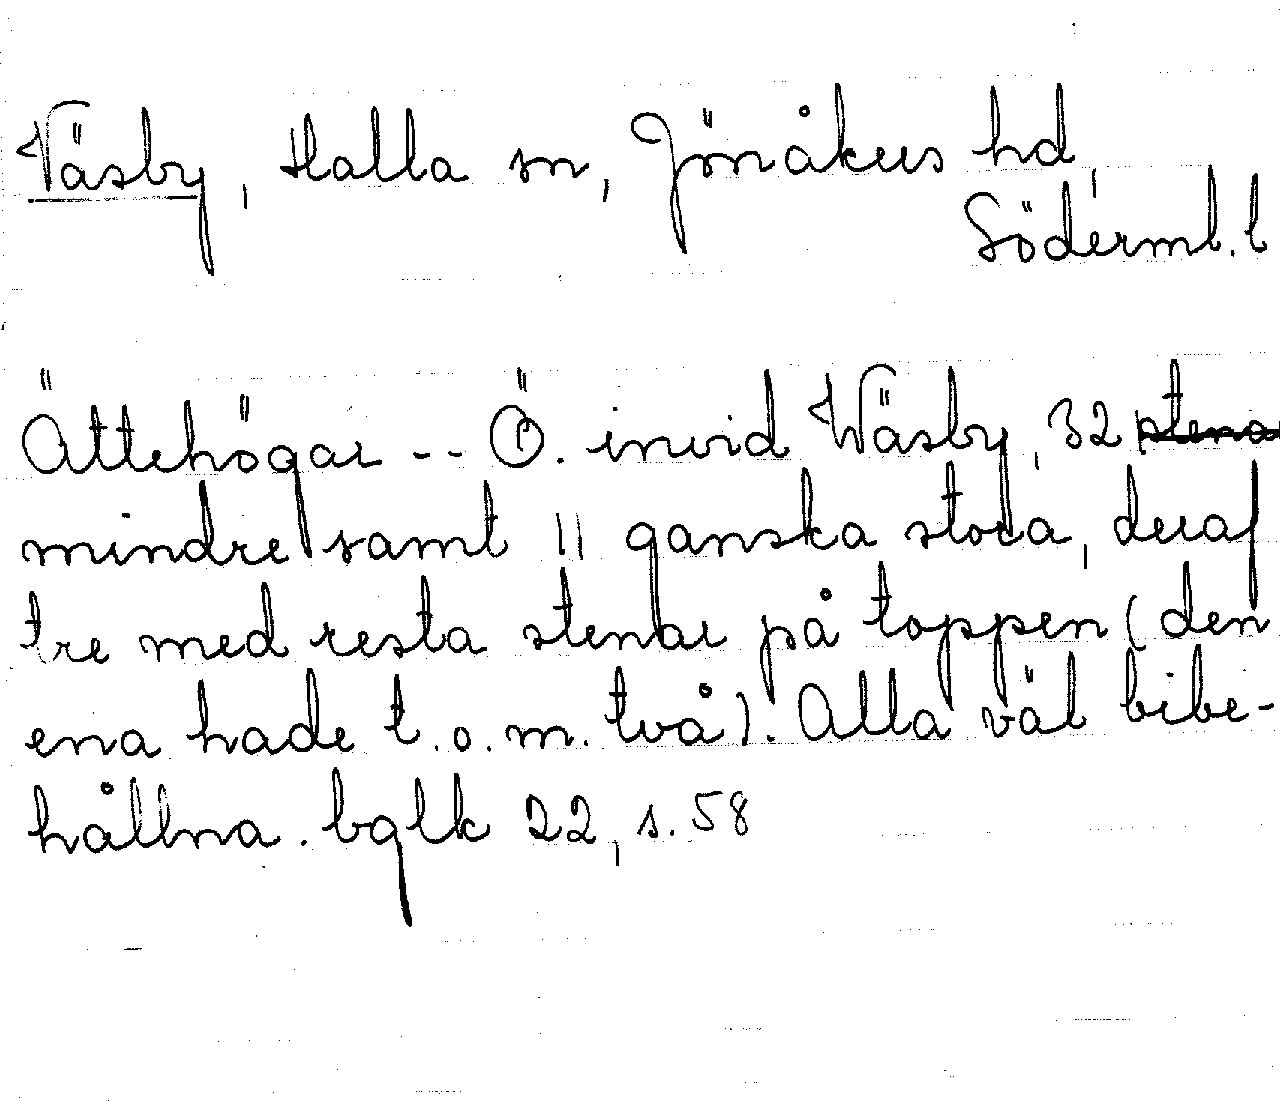 Väsby, Halla sn, Jönåkers hd,
Söderml. l
Ättehögar -- Ö. invid Wäsby, 32
mindre samt 11 ganska stora, deraf
tre med resta stenar på toppen (den
ena hade t.o.m. två). Alla väl bibe-
hållna. bglk 22, s. 58